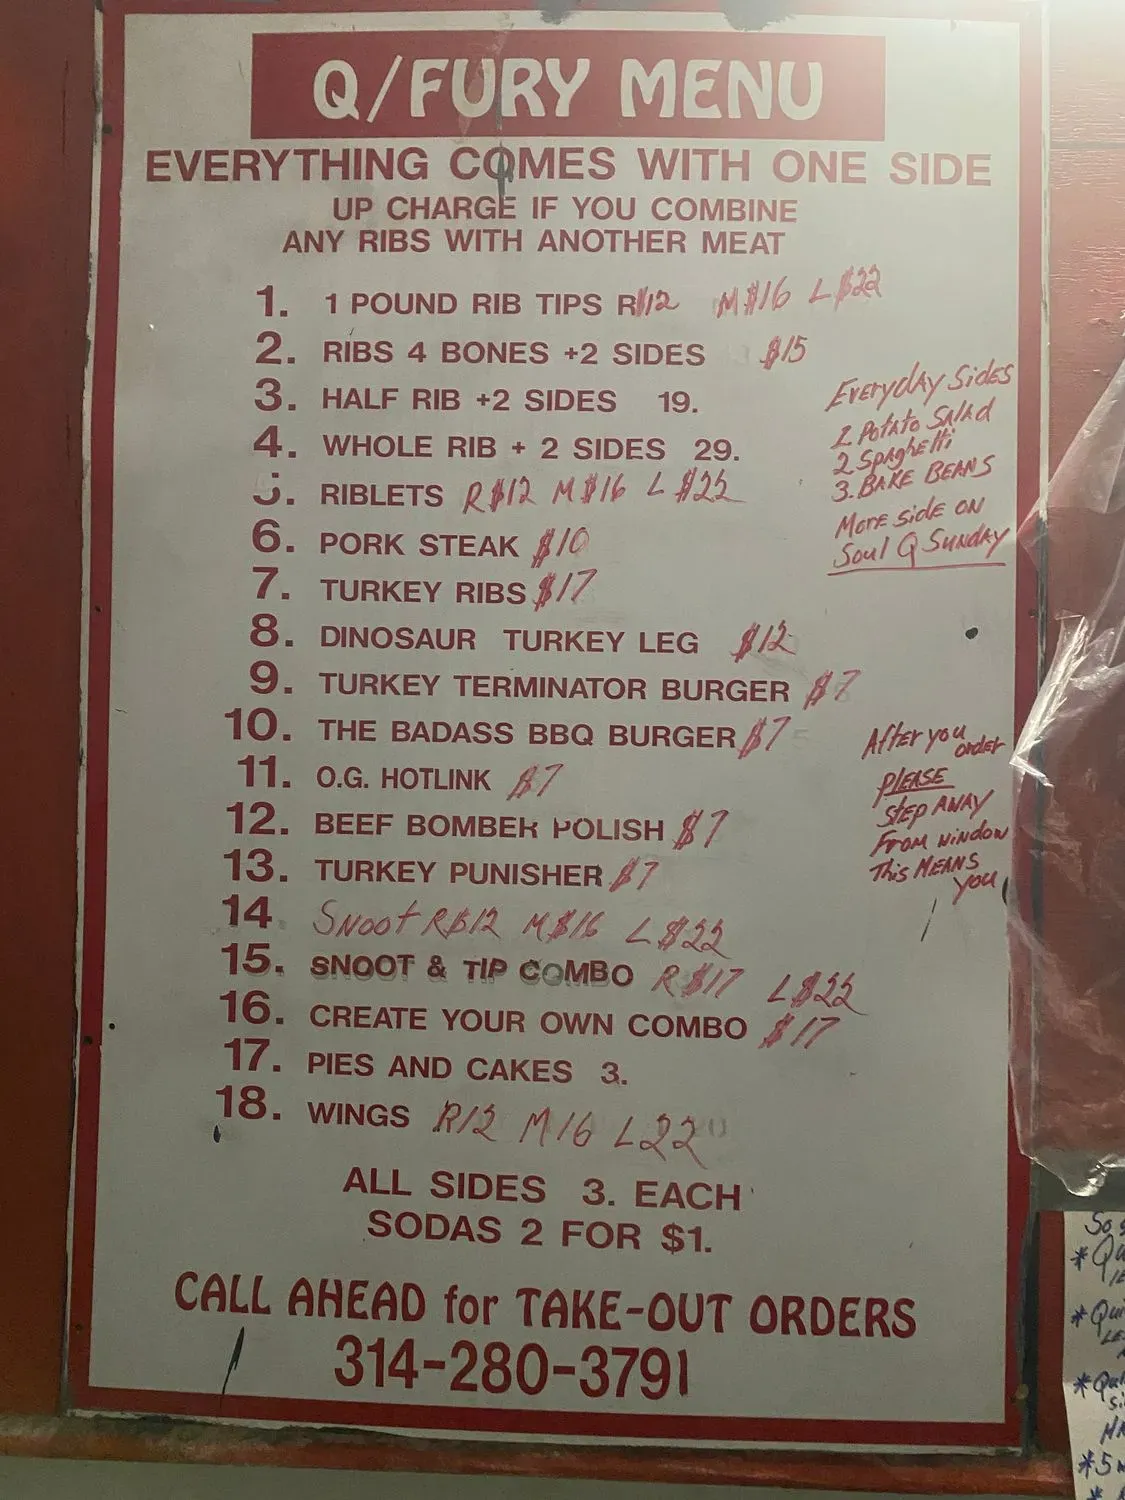 Q/FURY MENU
EVERYTHING COMES WITH ONE SIDE
UP CHARGE IF YOU COMBINE
ANY RIBS WITH ANOTHER MEAT
1. 1 POUND RIB TIPS R$12 M$16 L$22
2. RIBS 4 BONES +2 SIDES $15
3. HALF RIB +2 SIDES 19.
4. WHOLE RIB + 2 SIDES 29.
5. RIBLETS R$12 M$16 L $22
6. PORK STEAK $10
7. TURKEY RIBS $17
8. DINOSAUR TURKEY LEG $12
9. TURKEY TERMINATOR BURGER $7
10. THE BADASS BBQ BURGER $7
11. O.G. HOTLINK $7
12. BEEF BOMBER POLISH $7
13. TURKEY PUNISHER $7
14 Snoot R$12 M$16 L$22
15. SNOOT & TIP COMBO R$17 L$22
16. CREATE YOUR OWN COMBO $17
17. PIES AND CAKES 3.
18. WINGS R12 M16 L22
Everyday Sides
1. Potato Salad
2 Spaghetti
3. BAKE BEANS
More side on
Soul Q Sunday
After you order
PLEASE
Step AWAY
From window
This MEANS
you
ALL SIDES 3. EACH
SODAS 2 FOR $1.
CALL AHEAD for TAKE-OUT ORDERS
314-280-3791